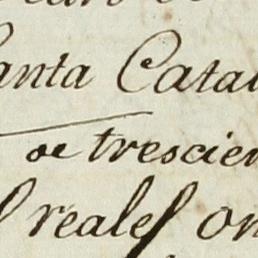 anta Catal
de trescien
reales on